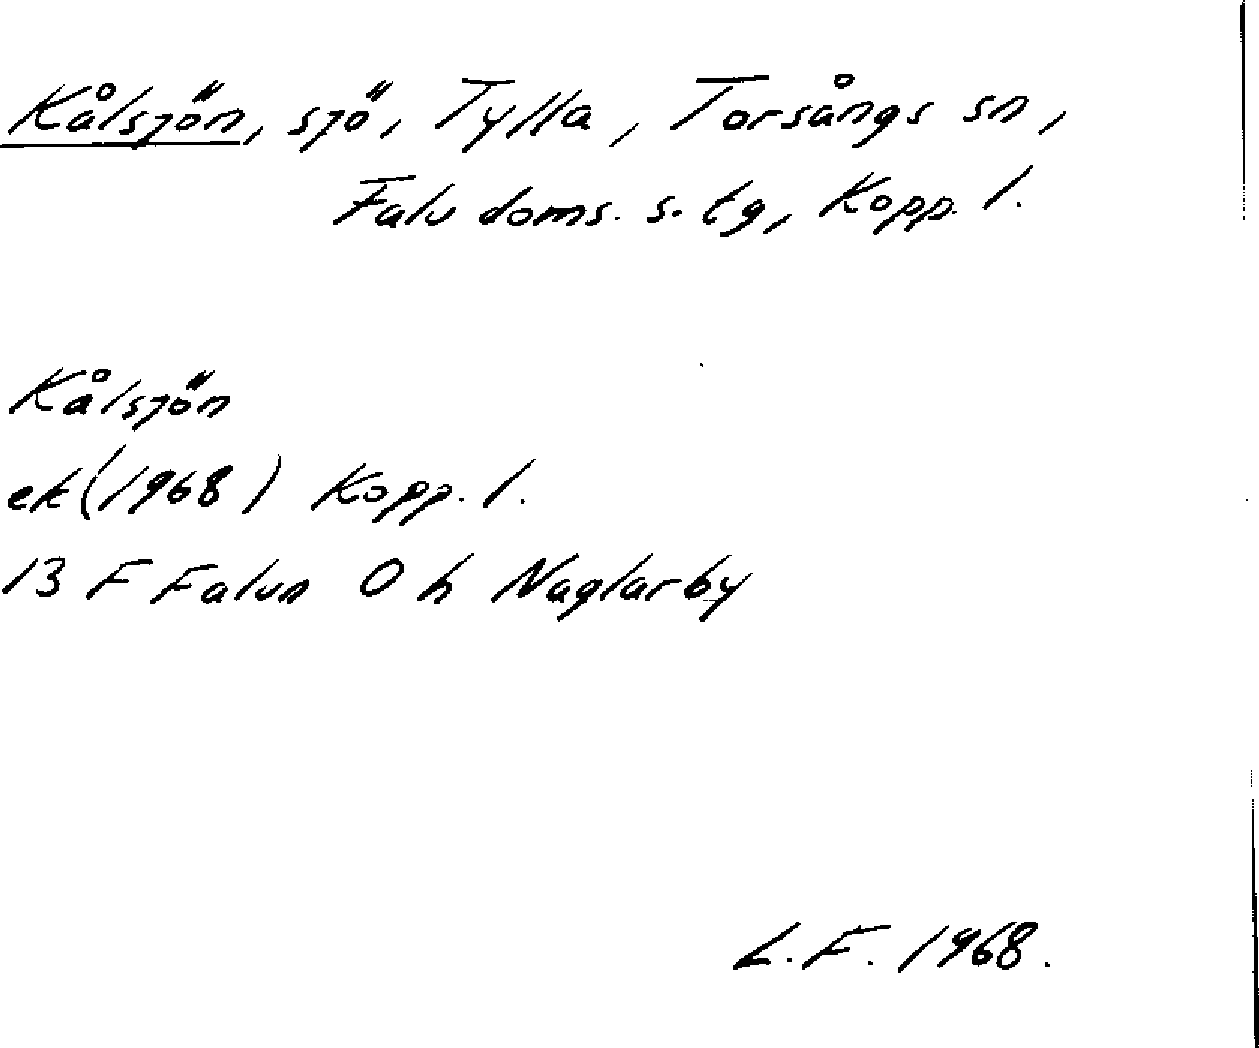 Kålsjön, sjö, Tylla, Torsångs sn,
Falu doms. s. tg, Kopp. l.
Kålsjön
ek (1968) Kopp. l.
13 F Falun 0 h Naglarby
L.F. 1968.